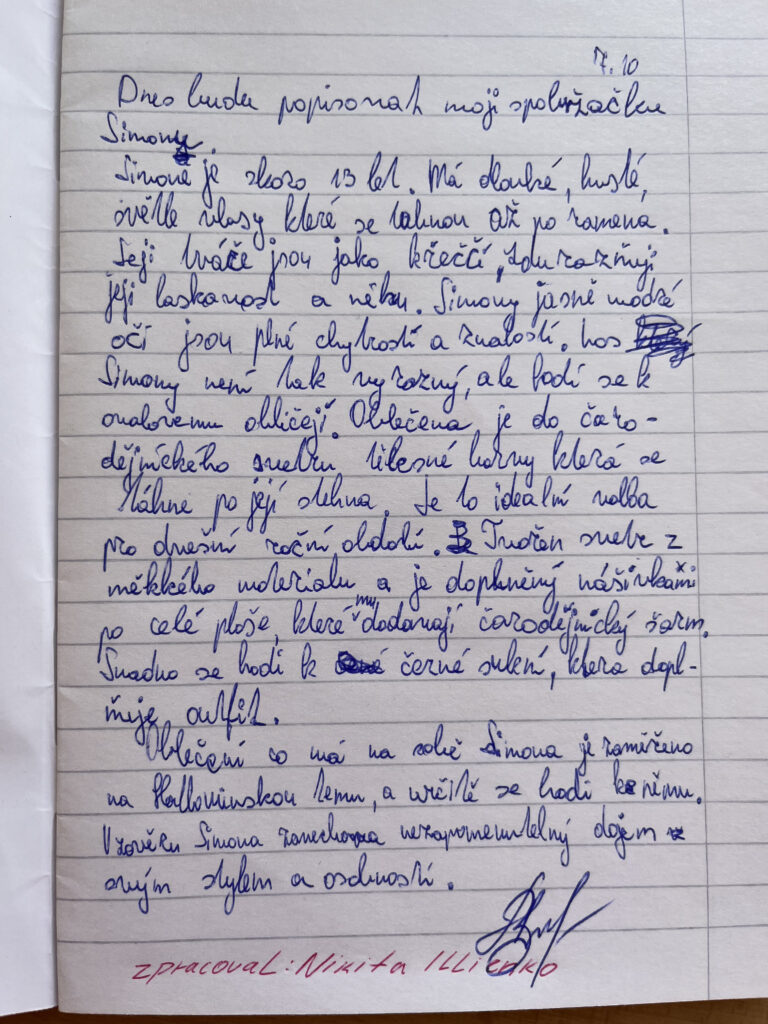 7.10
Dnes budu popisovat moji spolužačku
Simonu.
Simoně je skoro 13 let. Má dlouhé, husté,
světlé vlasy které se táhnou až po ramena.
Její tváče jsou jako křeččí, zdurazňují
její laskavost a něhu. Simony jasně modré
očí jsou plné chytrosti a znalostí. Nos
Simony není tak vyrazný, ale hodí se k
ovalovemu obličeji. Oblečena je do čaro-
dějnického svetru tělesné barvy která se
táhne po její stehna. Je to idealní volba
pro dnešní roční období. Tvořen svetr z
měkkého materialu a je doplněný nášivkami
po celé ploše, které mu dodavají čarodějnický šarm.
Snadno se hodí k černé sukní, ktera dopl-
ňuje outfit.
Oblečení co má na sobě Simona je zaměřeno
na Hallowinskou temu, a určitě se hodi k němu.
V zověru Simona zanechava nezapomenutelný dojem
svým stylem a osobností.
zpracoval: Nikita Illienko